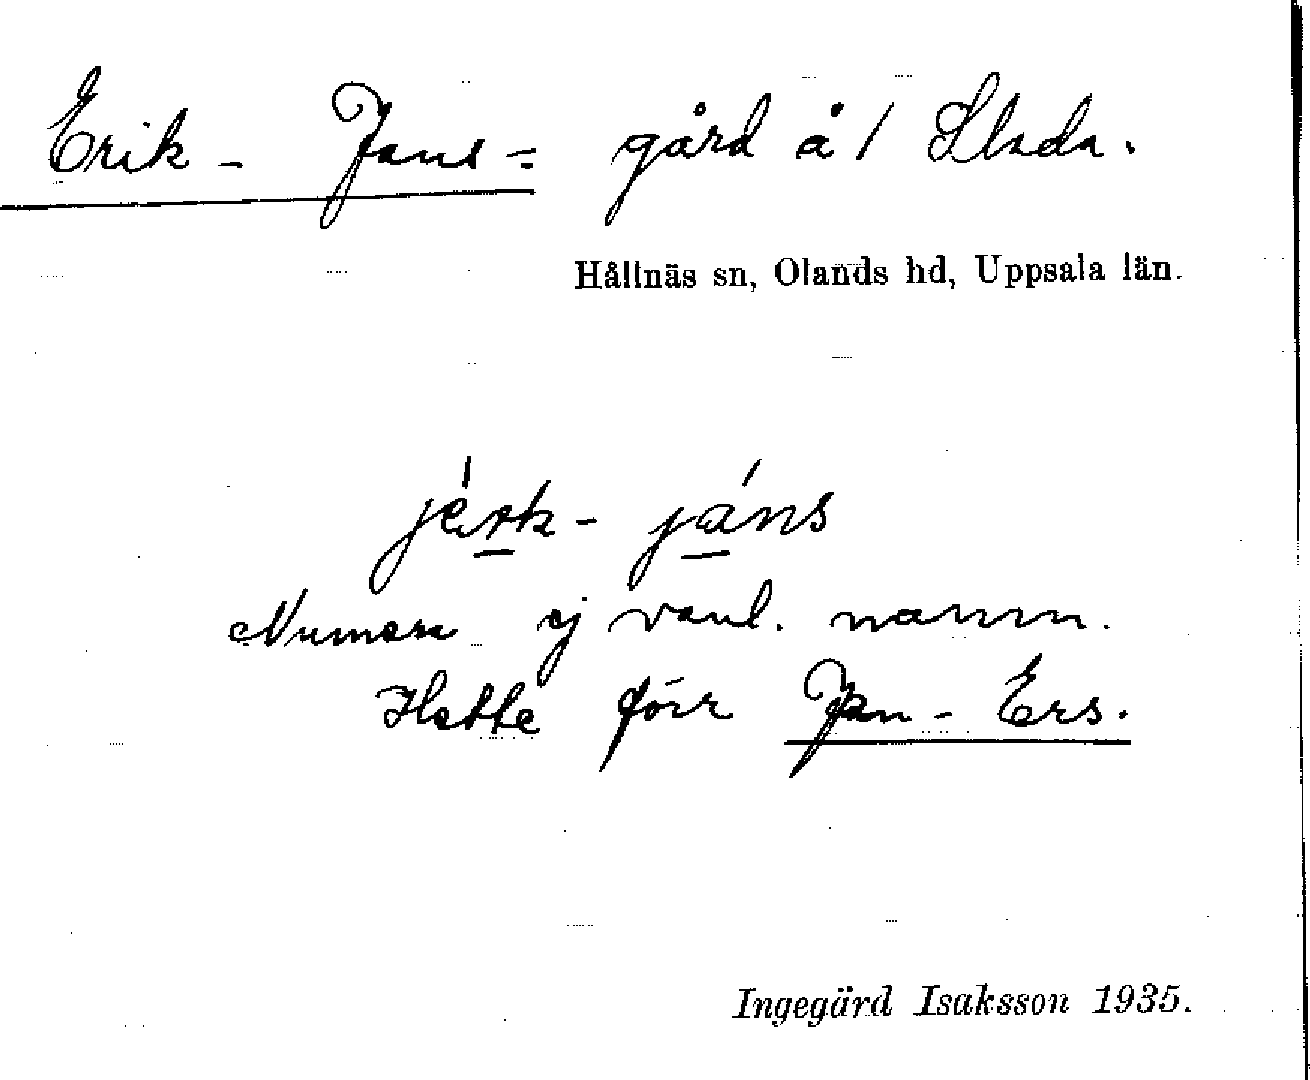 Erik-Jans= gård å 1 Slada.
Hållnäs sn, Olands hd, Uppsala län.
järk-jáns
Numera ej vanl. namn.
Hette förr Jan-Ers.
Ingegärd Isaksson 1935.